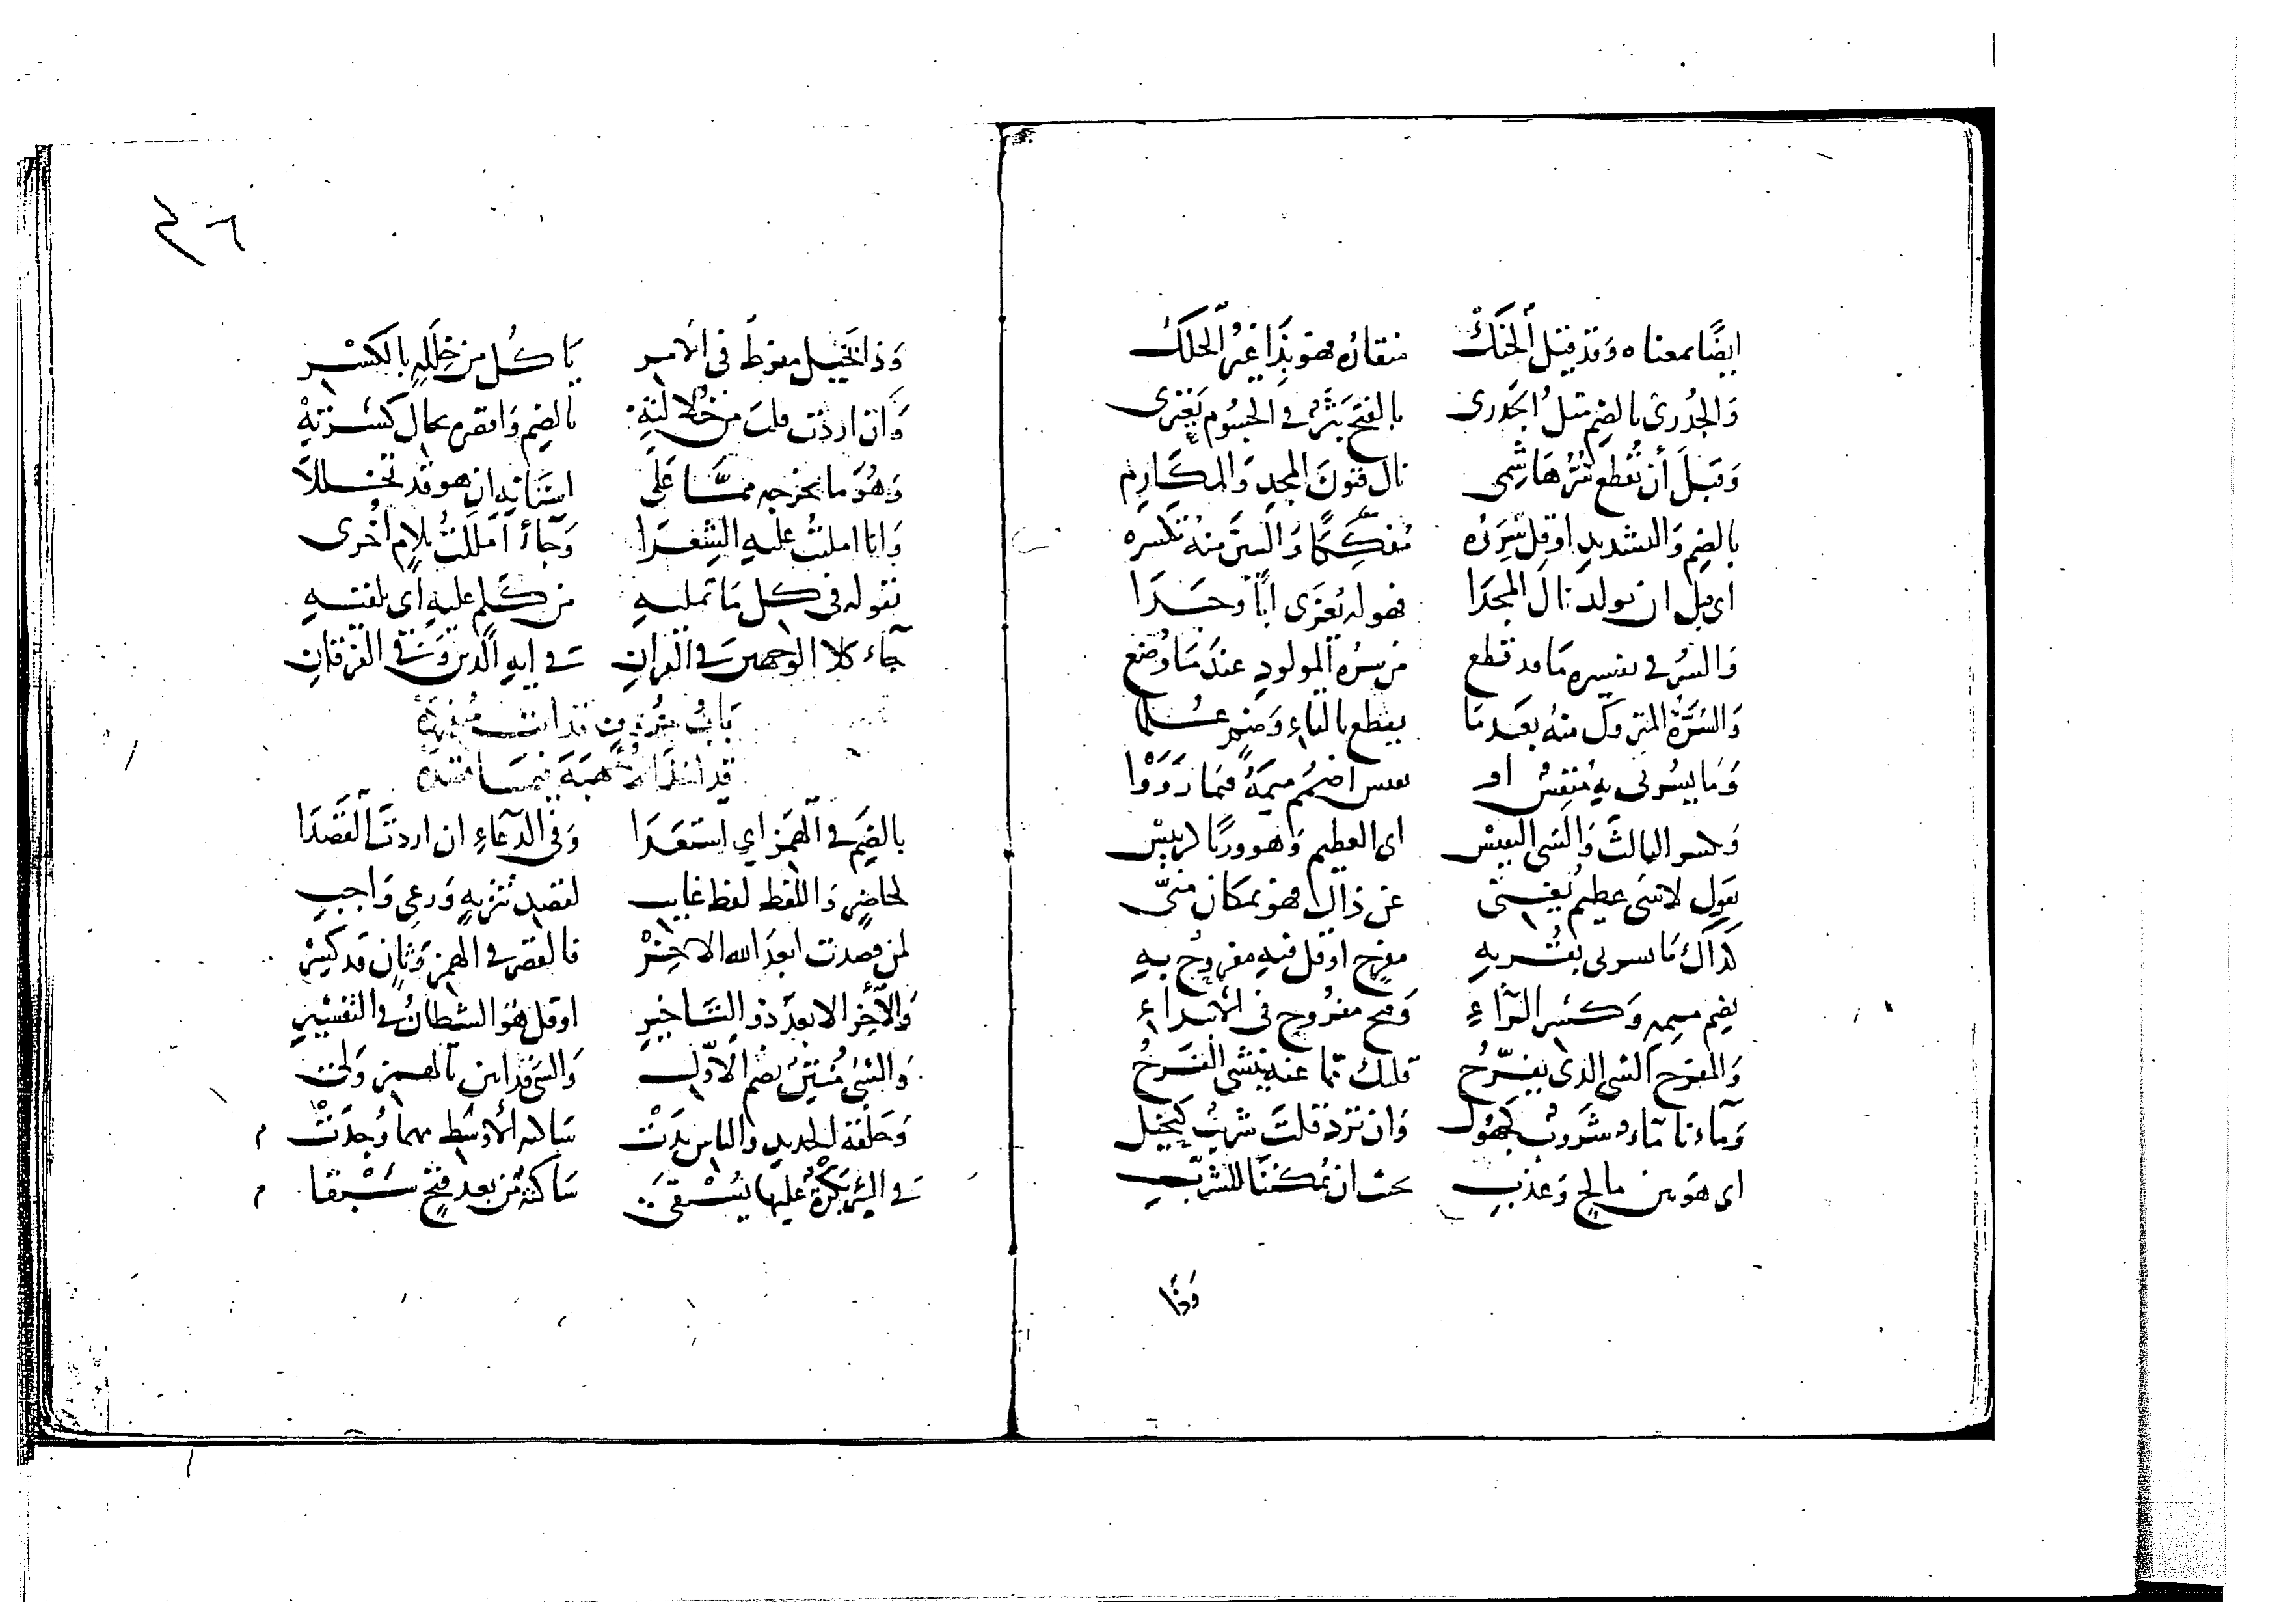 ايضًا بمعناه وقد قيل الحنك منقاره فهو بذا غير الحلك
وَالجُدَرى بالضم مثل الجَدَرى بالفتح بَثْرٌ في الجسوم يَعْترى
وَقبلَ أن تُقطع سُرُّ هَاشمى نال فنونَ المجدِ وَالمكَارِم
بالضم وَالتشديد او قل سِرَرُه مُفككًا وَالسين منه تكسره
اى قبل ان تولد نال المجدَا فهو له يُعْزَى أبًا وجَدّا
وَالسُر في تفسيره مَا قد قطع من سُرّة المولود عندَمَا وُضع
وَالسُّرَّة المتروك منه بعدمَا يقطع بالتاء وَضم علما
وَمَا يسُرنى به مُنفِسٌ او نفيس اضمُم ميمَهُ فيمَا رَوَوْا
وَكسر الثالث وَالشى النفيسْ اى العظيم وَهو وزنًا كرئيسْ
يقول لا شى عظيم يُغنى عن ذاك فهو بمكان منّى
كذاك مَا يسرنى بقُربه مفرح او قل فيه مفروح به
بضم ميمه وَكسر الرآءِ وَفتح مفروح فى الابتداءِ
وَالمفرح الشى الذى يفرّحُ قلبك ممّا عنه ينشى الفرحُ
وَمَاءنا مَاءٌ شَروبٌ كجهول وَان تزد قلتَ شريبٌ كبخيل
اى هوَ بين مالح وَعذب بحيث ان يُمكننا للشرب
وَذَا
٢٦
وَذا لبخيل مفرط فى الامر يَاكُل من خِلَلِه بالكسر
وَان اردت قلت من خُلالته بالضم وَاقصره بحال كسرته
وَهُوَ مَا يخرجه ممّا عَلَى اسنانه ان هو قد تخللا
وَانا امليتُ عليه الشعرَا وَجاءَ امللتُ بلام اُخرى
تقوله فى كل مَا تمليه من كَلم عليه اى تلقيه
جاء كلا الوجهين في القرانِ في ايه الدين وَفى الفرقانِ
بَابُ حروف
قد اخذ الاُهبَةَ فيمَا
بالضم فى الهمز اي استعدَا وَفى الدعاءِ ان اردتَ القصدَا
لحاضر وَاللفظ لفظ غايب لقصد تنزيه وَرعى وَاجب
لمن قصدت ابعدَ الله الاخرْ فالقصر فى الهمز وَثانٍ قد كسرْ
وَالآخِر الابعدُ ذو التاخير او قل هو الشطانُ فى التفسير
وَالشى مُنتنٌ بضم الاوّل وَالشى قد انتن بالهمز
وَحلقة الحديد وَالناس بدَتْ ساكنة الاوسط مهما وُجدَتْ
في البئر بَكْرة عليها يُسْتقى سَاكنة من بعد فتح سَبقا